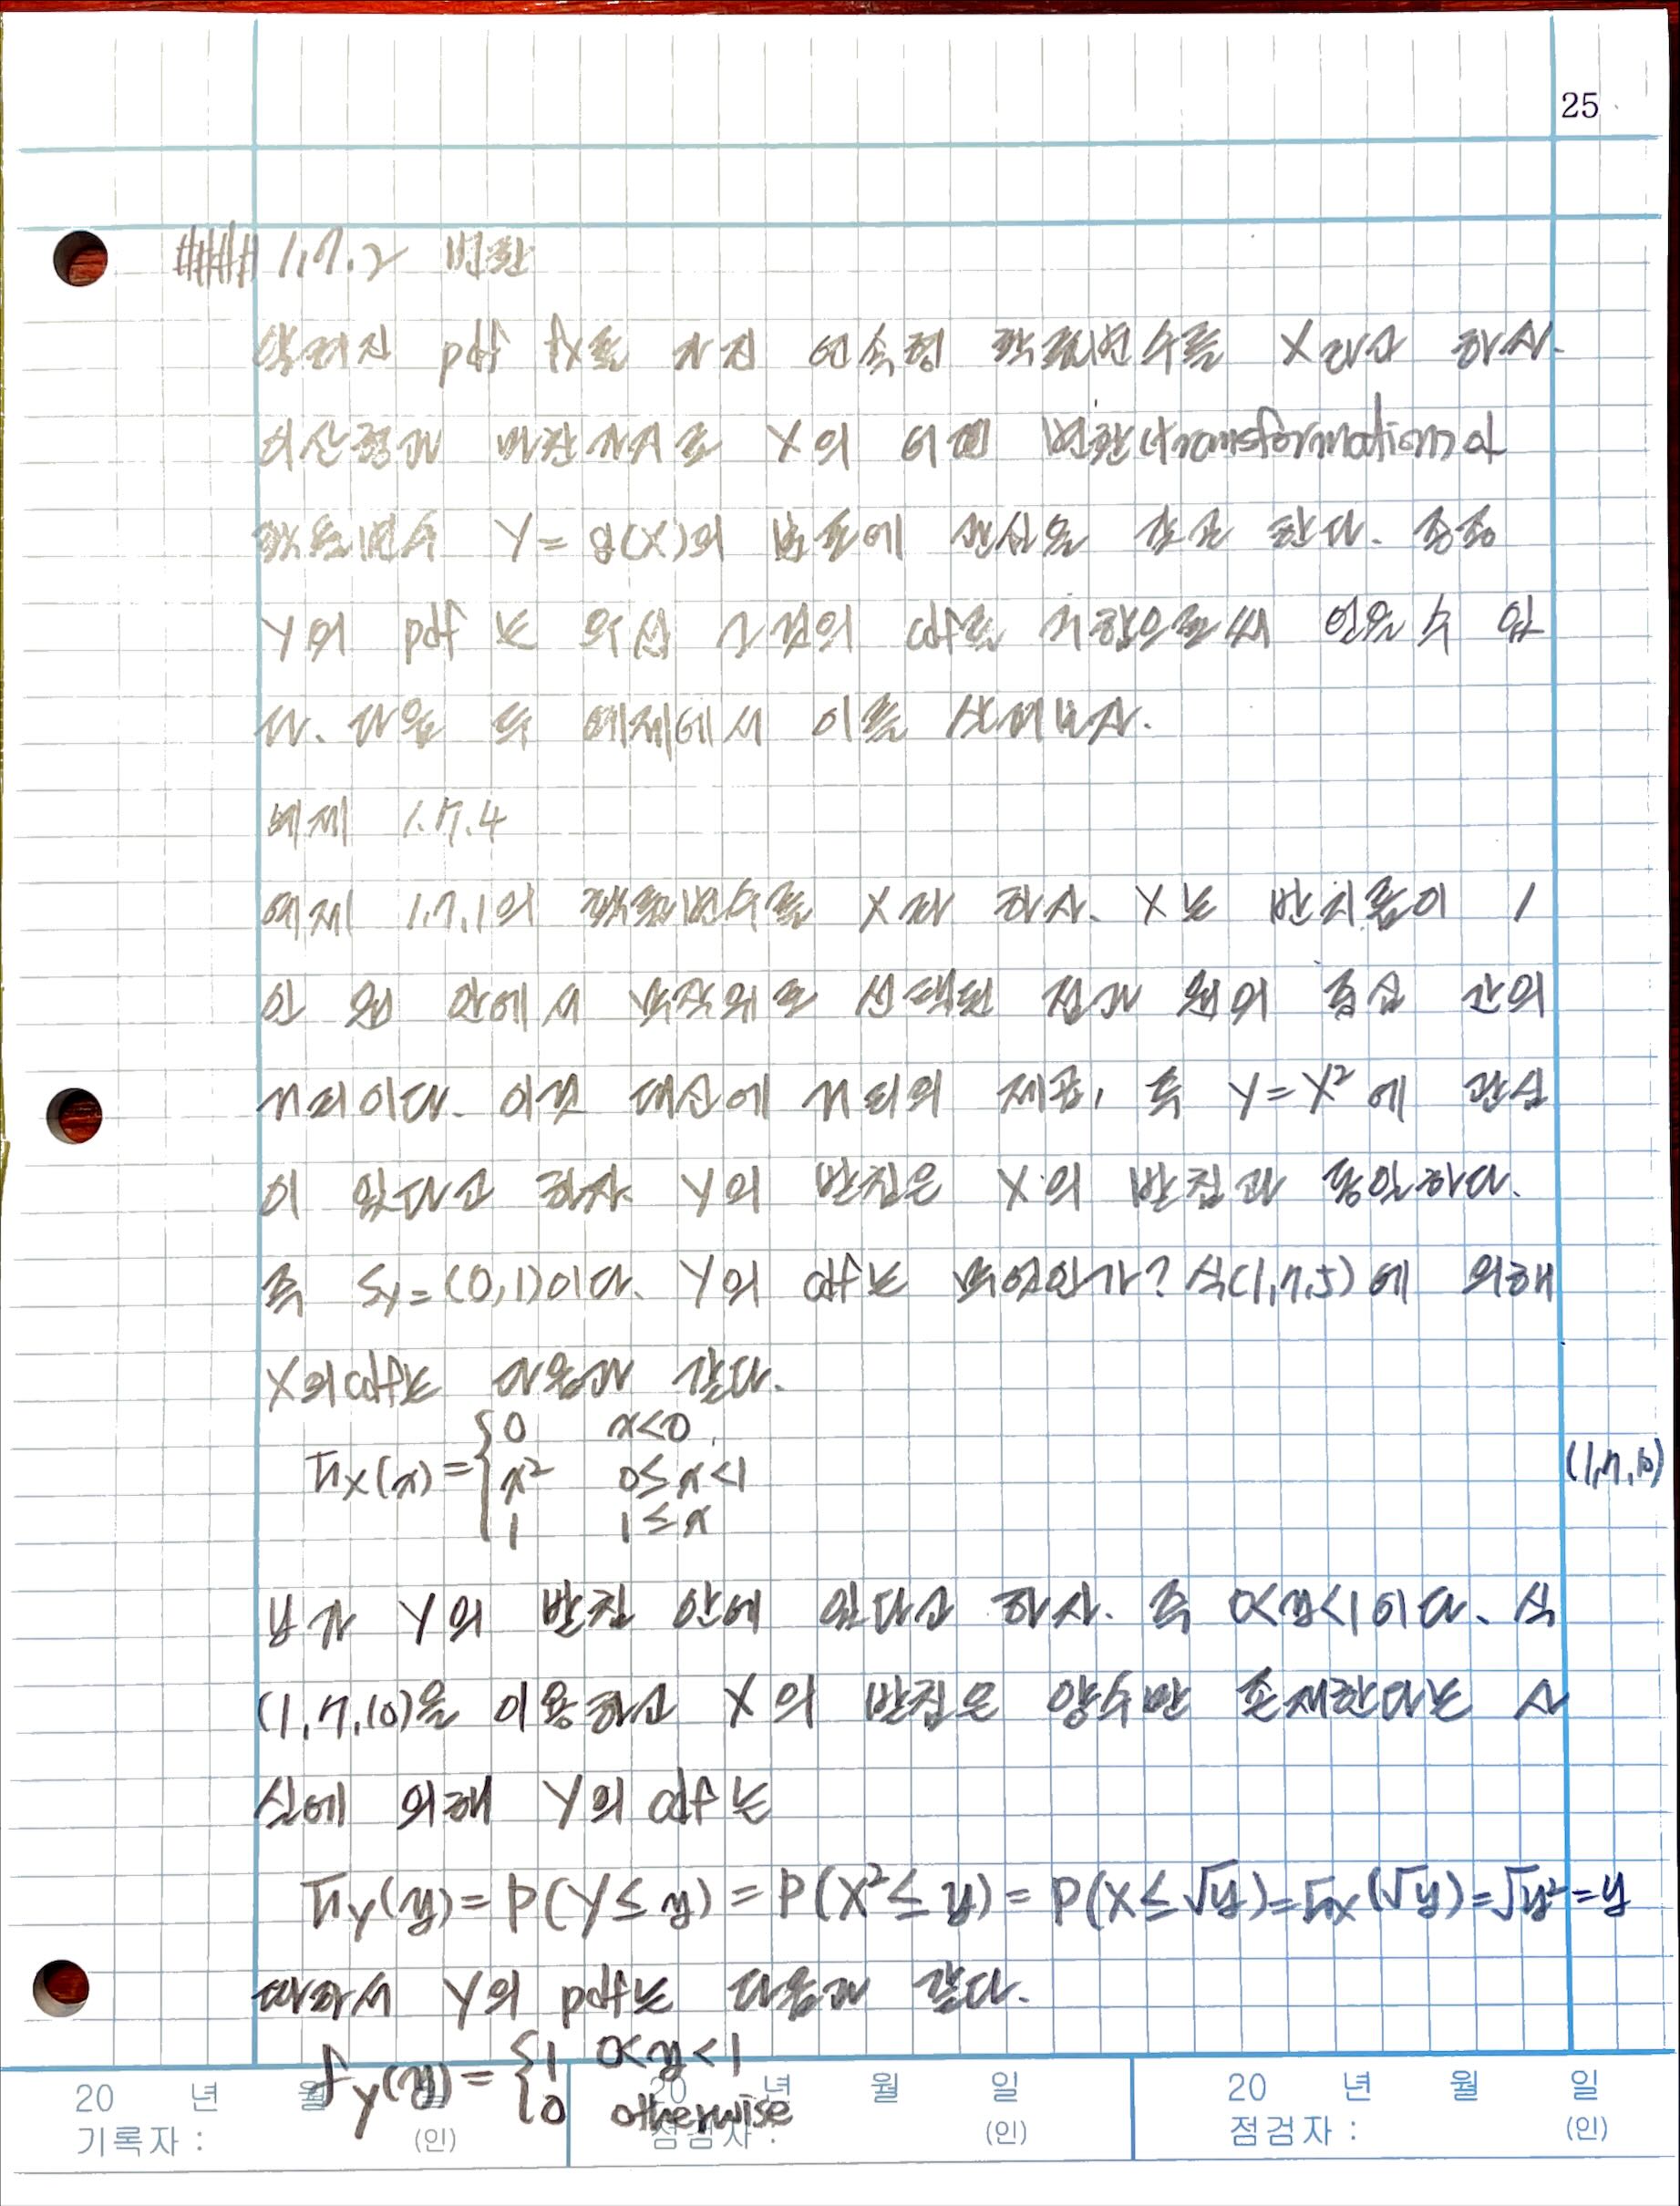 25
#### 1.7.2 변환
알려진 pdf fx를 가진 연속형 확률변수를 X라고 하자.
이산형과 마찬가지로 X의 어떤 변환(transformation)인
확률변수 Y = g(X)의 분포에 관심을 갖곤 한다. 종종
Y의 pdf는 우선 그것의 cdf를 구함으로써 얻을 수 있
다. 다음 두 예제에서 이를 살펴보자.
예제 1.7.4
예제 1.7.1의 확률변수를 X라 하자. X는 반지름이 1
인 원 안에서 무작위로 선택된 점과 원의 중심 간의
거리이다. 이것 대신에 거리의 제곱, 즉 Y = X² 에 관심
이 있다고 하자. Y의 받침은 X의 받침과 동일하다.
즉 Sʏ = (0,1)이다. Y의 cdf는 무엇인가? 식(1.7.5)에 의해
X의 cdf는 다음과 같다.
Fx(x) = { 0 x<0
x² 0≤x<1
1 1≤x
(1.7.10)
y가 Y의 받침 안에 있다고 하자. 즉 0<y<1이다. 식
(1.7.10)을 이용하고 X의 받침은 양수만 존재한다는 사
실에 의해 Y의 cdf는
Fʏ(y) = P(Y≤y) = P(X²≤y) = P(X≤√y) = Fx(√y) = √y² = y
따라서 Y의 pdf는 다음과 같다.
fʏ(y) = { 1 0<y<1
0 otherwise
20 년 월 일 20 년 월 일 20 년 월 일
기록자 : (인) 점검자 : (인) 점검자 : (인)